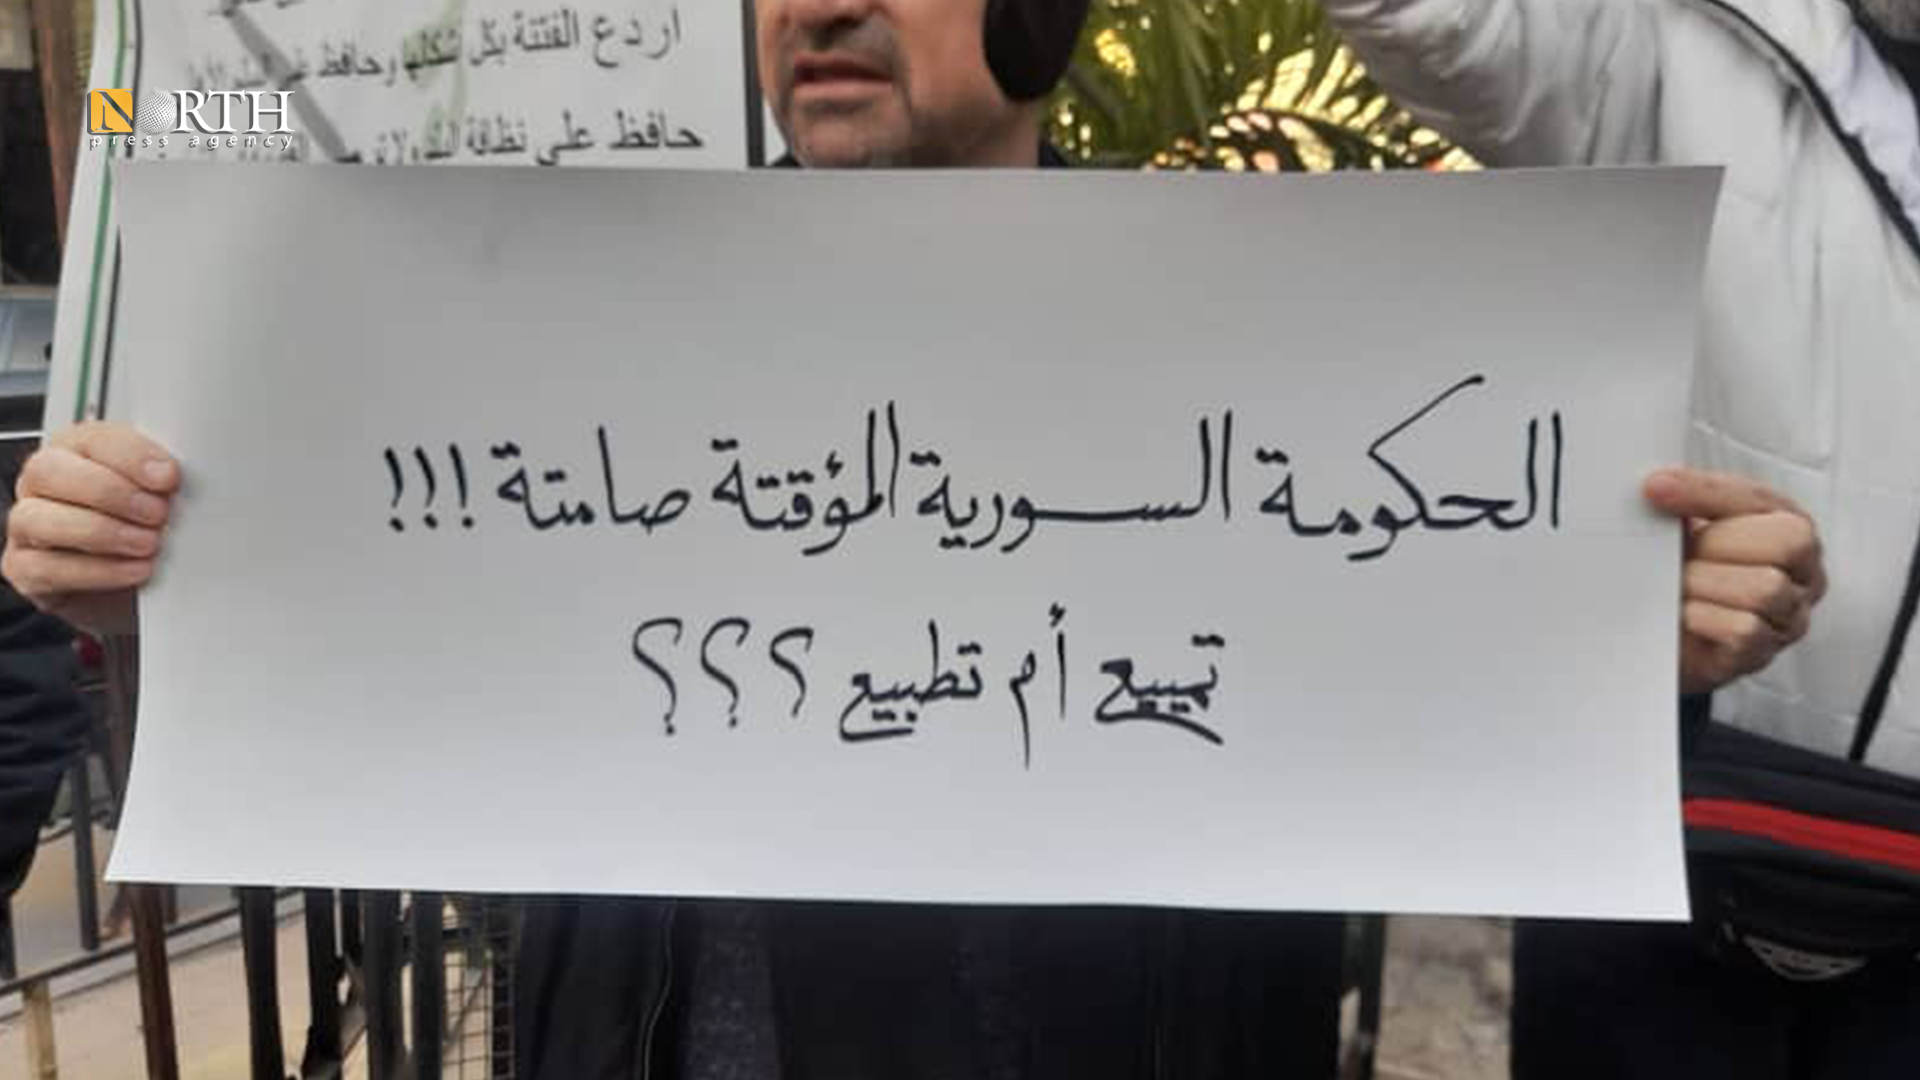 اردع الفتنة بكل شكلها وحافظ
حافظ على نظافة
NORTH
press agency
الحكومة السورية المؤقتة صامتة !!!
تمييع أم تطبيع ؟؟؟